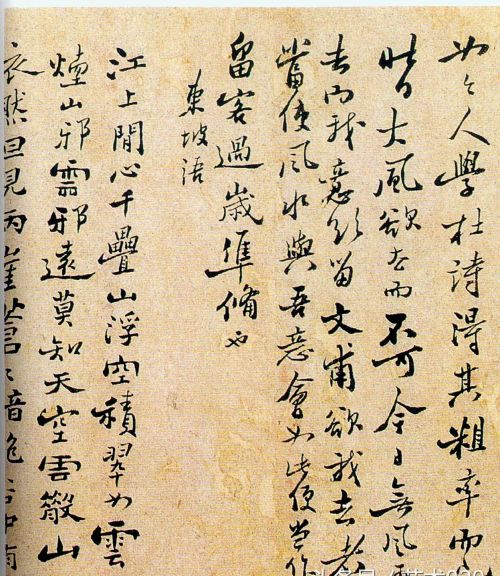 人學杜詩得其粗率而
昨日大風欲去而不可今日無風
去而我意欲留文甫欲我去者
當使風水與吾意會如此便當作
留客過歲準備也
東坡語
江上閒心千疊山浮空積翠如雲
煙山邪雲邪遠莫知天空雲散山
然但見兩崖蒼々暗絕谷中有